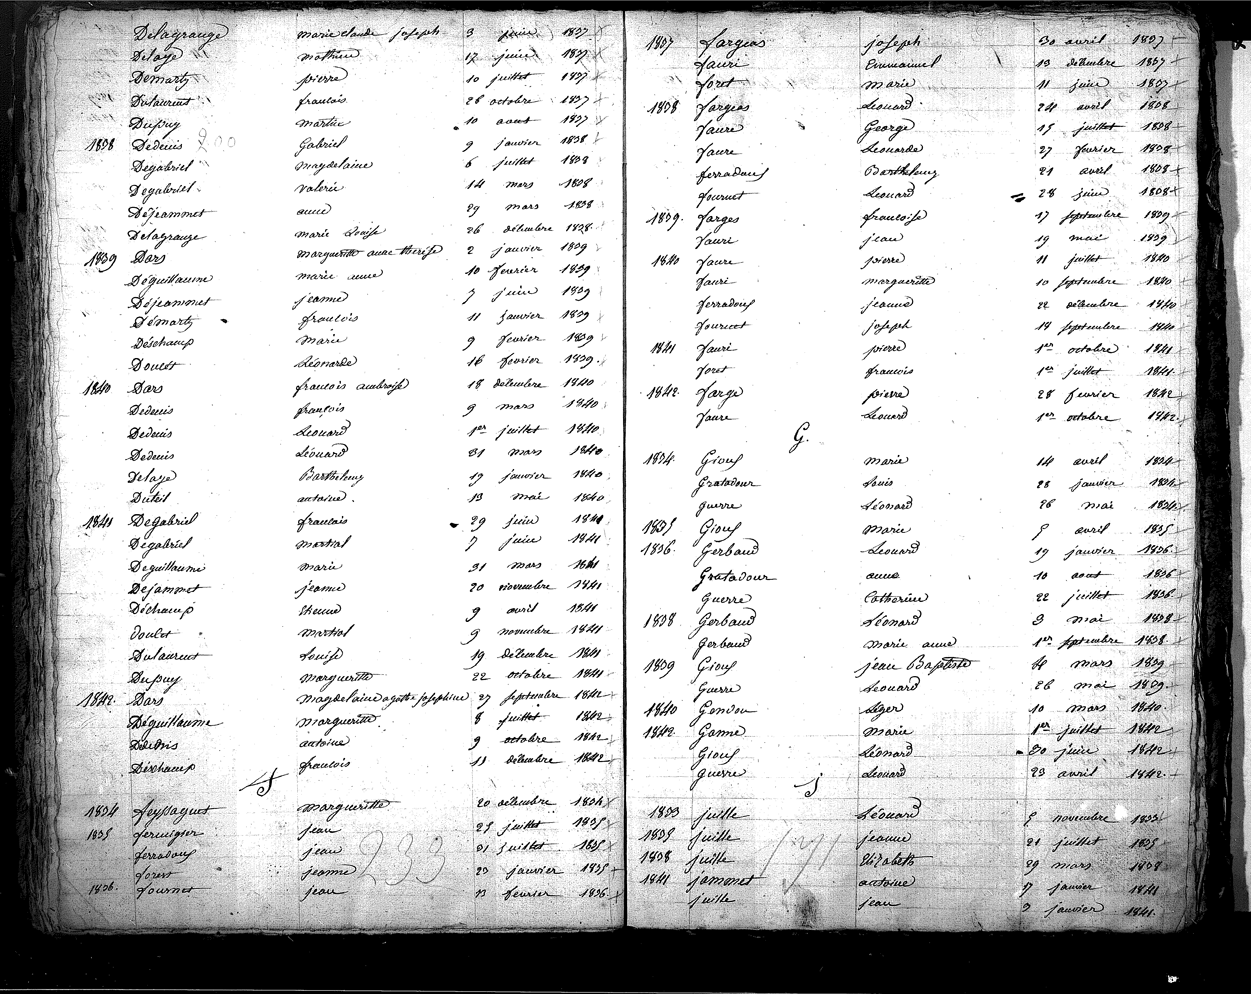 Delagrange marie claude joseph 3 juin 1837
Delaye mathieu 17 juin 1837
Demarty pierre 10 juillet 1837
Dulaurent francois 28 octobre 1837
Dupuy martin 10 aout 1837
1838 Dedenis Gabriel 9 janvier 1838
200
Degabriel magdelaine 6 juillet 1838
Degabriel valerie 14 mars 1838
Dejeammet anne 29 mars 1838
Delagrange marie Louise 26 décembre 1838
1839 Dars marguerite anne thérèse 2 janvier 1839
Déguillaume marie anne 10 fevrier 1839
Déjeammet jeanne 7 juin 1839
Démarty francois 11 janvier 1839
Déschamp marie 9 fevrier 1839
Doucet Léonarde 16 fevrier 1839
1840 Dars francois ambroise 18 décembre 1840
Dedenis françois 9 mars 1840
Dedenis Léonard 1er juillet 1840
Dedenis Léonard 31 mars 1840
Delaye Barthelemy 19 janvier 1840
Duteil antoine 13 mai 1840
1841 Degabriel francois 29 juin 1841
Degabriel martial 7 juin 1841
Deguillaume marie 31 mars 1841
Dejammet jeanne 20 novembre 1841
Déchamp Etienne 9 avril 1841
doulet martial 9 novembre 1841
Dulaurent Louise 19 décembre 1841
Dupuy marguerite 22 octobre 1841
1842 Dars magdelaine agathe josephine 27 septembre 1842
Déguillaume marguerite 8 juillet 1842
Dédenis antoine 9 octobre 1842
Déschamp francois 11 décembre 1842
f
1834 feyssaguet marguerite 20 décembre 1834
1835 fermigier jean 25 juillet 1835
ferradous jean 31 juillet 1835
233
forest jeanne 23 janvier 1835
1836 fournet jean 13 fevrier 1836
1837 fargeas joseph 30 avril 1837
fauri Emmanuel 13 décembre 1837
foret marie 11 juin 1837
1838 fargeas Léonard 24 avril 1838
faure George 15 juillet 1838
faure Léonarde 27 fevrier 1838
ferradous Barthelemy 21 avril 1838
fournet Léonard 28 juin 1838
1839 farges francoise 17 septembre 1839
fauri jean 19 mai 1839
1840 faure pierre 11 juillet 1840
fauri marguerite 10 septembre 1840
ferradous jeanne 22 décembre 1840
fournet joseph 18 septembre 1840
1841 fauri pierre 1er octobre 1841
foret francois 1er juillet 1841
1842 farge pierre 28 fevrier 1842
faure Léonard 1er octobre 1842
G.
1834 Gious marie 14 avril 1834
Gratadour Louis 28 janvier 1834
guerre Léonard 26 mai 1834
1835 Gious Marie 5 avril 1835
1836 Gerbaud Léonard 19 janvier 1836
Gratadour anne 10 aout 1836
Guerre Catherine 22 juillet 1836
1838 Gerbaud Léonard 3 mai 1838
Gerbaud marie anne 1er septembre 1838
1839 Gious jean Baptiste mars 1839
Guerre Léonard 26 mai 1839
1840 Gondou Léger 10 mars 1840
1842 Ganne Marie 1er juillet 1842
Gious Léonard 20 juin 1842
guerre Léonard 23 avril 1842
j
1833 juille Léonard 5 novembre 1833
1835 juille jeanne 21 juillet 1835
1838 juille Elizabeth 29 mars 1838
171
1841 jammet antoine 7 janvier 1841
juille jean janvier 1841